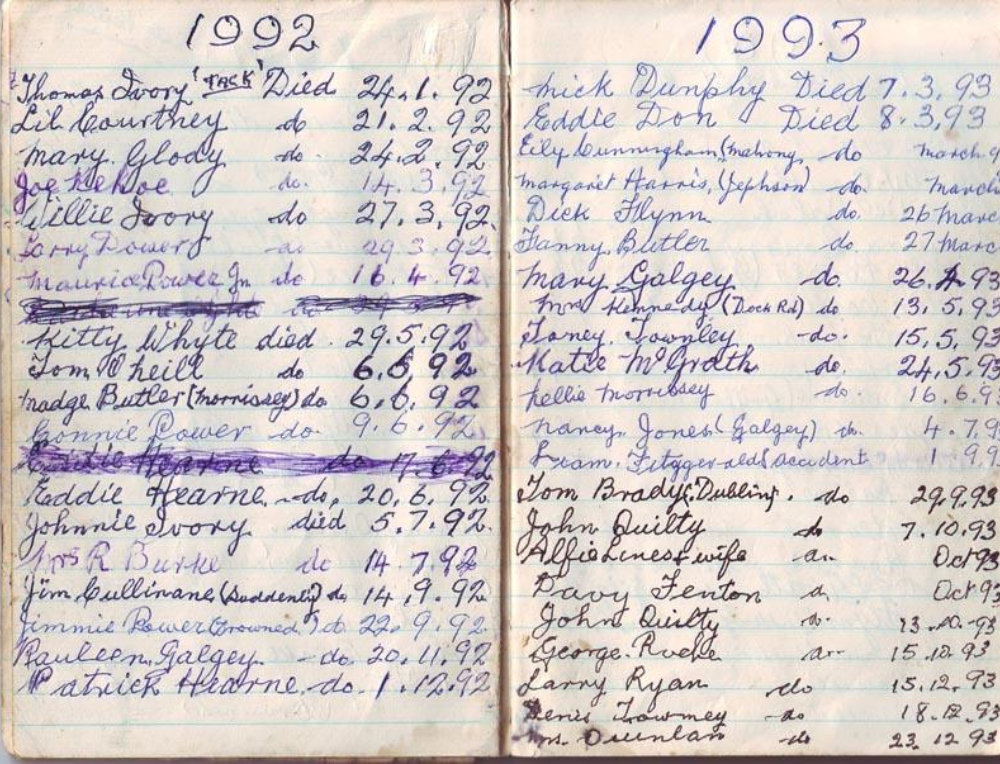 1992
Thomas Ivory 'TACK' Died 24.1.92
Lil Courtney do 21.2.92
Mary Glody do. 24.2.92
Joe Kehoe do. 14.3.92
Willie Ivory do 27.3.92
Larry Powers do 29.3.92
Maurice Power Jn do 16.4.92
Kitty Whyte died. 29.5.92
Tom O'Neill do 6.6.92
Madge Butler (Morrissey) do 6.6.92
Connie Power do. 9.6.92
Hearne do 17.6.92
Eddie Hearne do, 20.6.92
Johnnie Ivory died 5.7.92.
Mrs R Burke do 14.7.92
Jim Cullinane (Suddenly) do 14.9.92
Jimmie Power (Drowned) do 22.9.92
Pauleen Galgey. do 20.11.92
Patrick Hearne. do. 1.12.92
1993
Mick Dunphy Died 7.3.93
Eddie Don Died 8.3.93
Eily Cunningham (Mahony do March
Margaret Harris, (Jephson) do. March
Dick Flynn do. 26 Marc
Fanny Butler do. 27 Marc
Mary Galgey do. 26.4.93
Mrs Kennedy (Dock Rd) do 13.5.93
Toney Townley do. 15.5.93
Katie McGrath do. 24.5.93
Nellie Morrissey do. 16.6.9
Nancy Jones (Galgey) do. 4.7.9
Liam Fitzgerald Accident 1.9.9
Tom Brady (Dublin). do 29.9.93
John Quilty do 7.10.93
Alfie Lines wife do Oct 93
Davy Fenton do Oct 93
John Quilty do. 13.10.93
George Roche do 15.10.93
Larry Ryan do 15.12.93
Denis Twomey do 18.12.93
Mrs. Quinlan do 23.12 93